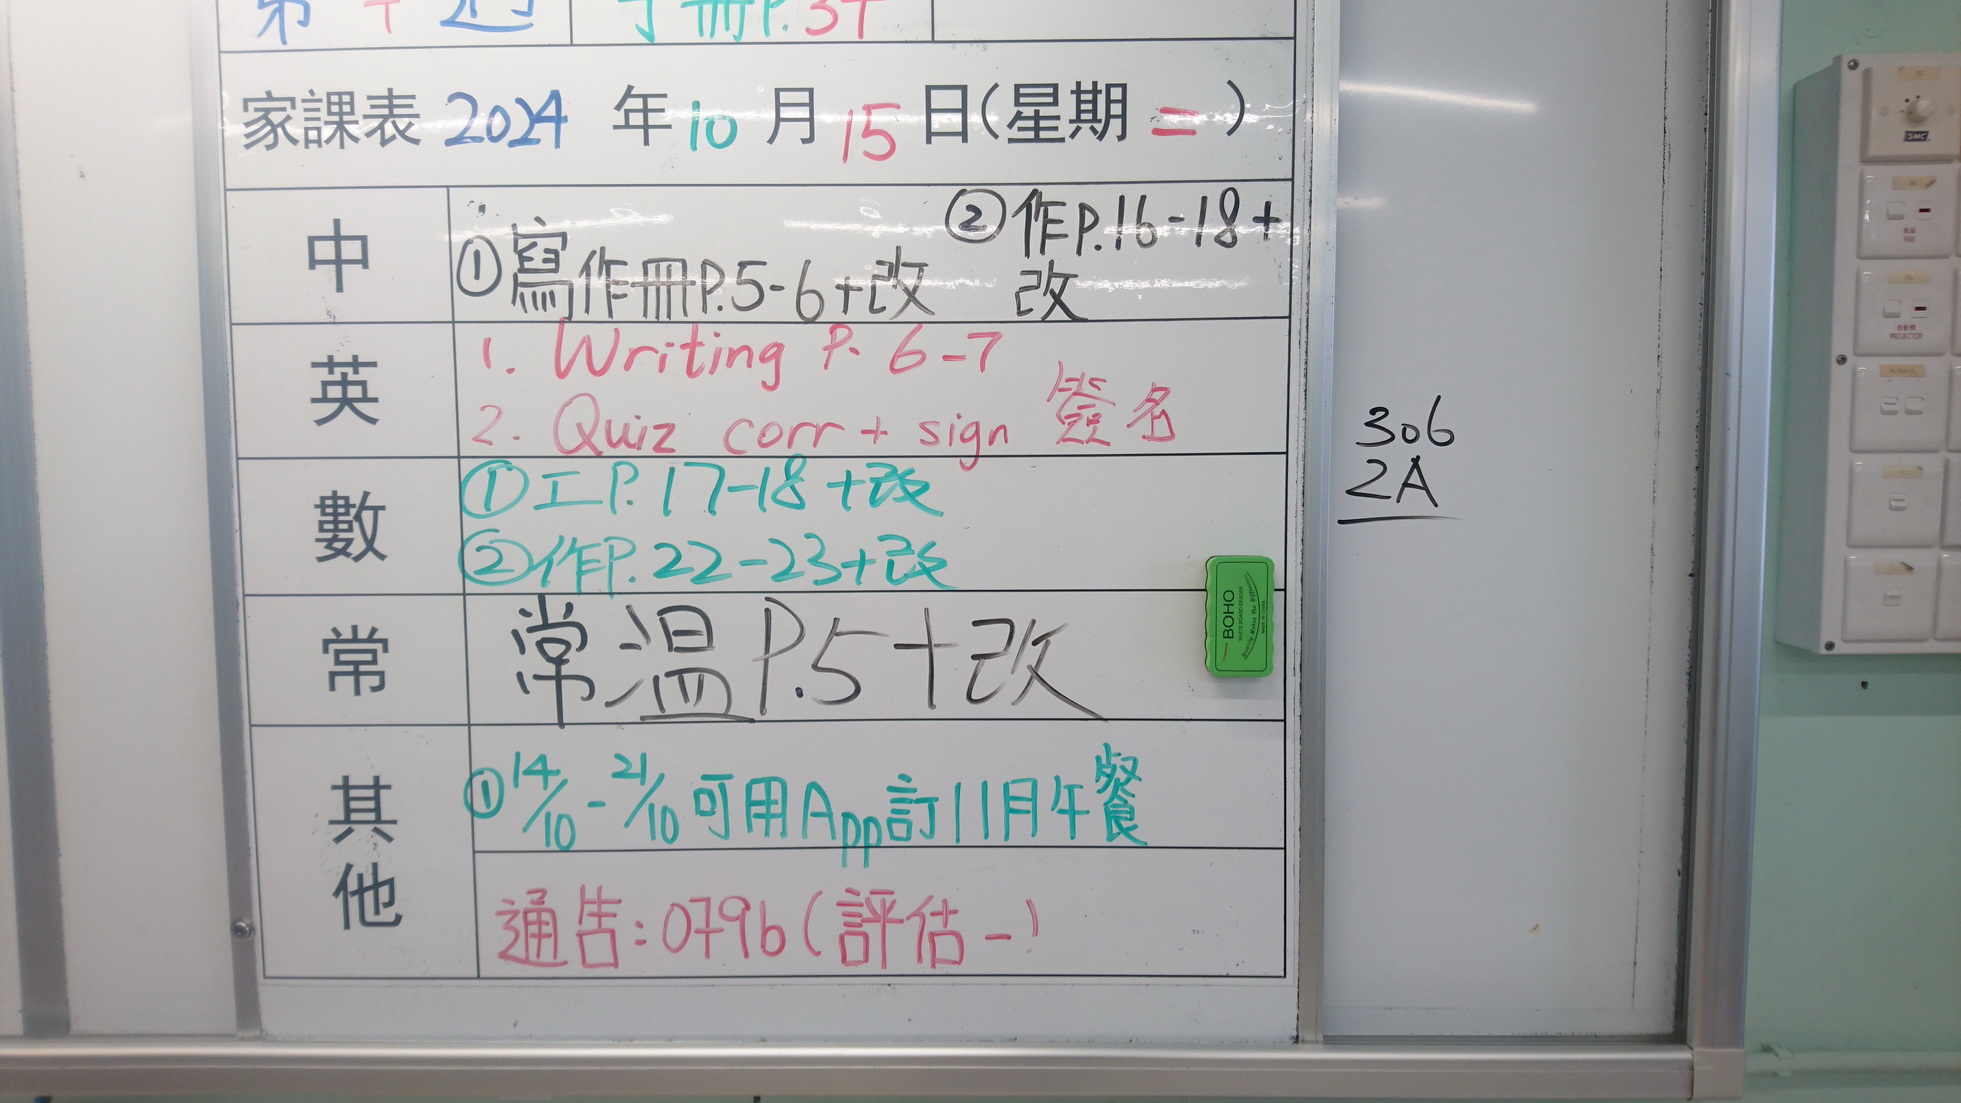 第十週 手冊P.34
家課表 2024 年 10 月 15 日(星期 二 )
中
② 作P.16-18+
① 寫作冊P.5-6+改 改
英
1. Writing P. 6-7
2. Quiz corr + sign 簽名
數
① 工P.17-18+改
② 作P.22-23+改
常
常溫P.5+改
其他
① 14/10-21/10可用App訂11月午餐
通告:079b(評估一)
306
2A
BOHO
WHITE BOARD ERASER
Quality Makes The Difference
SMC
PROJECTOR